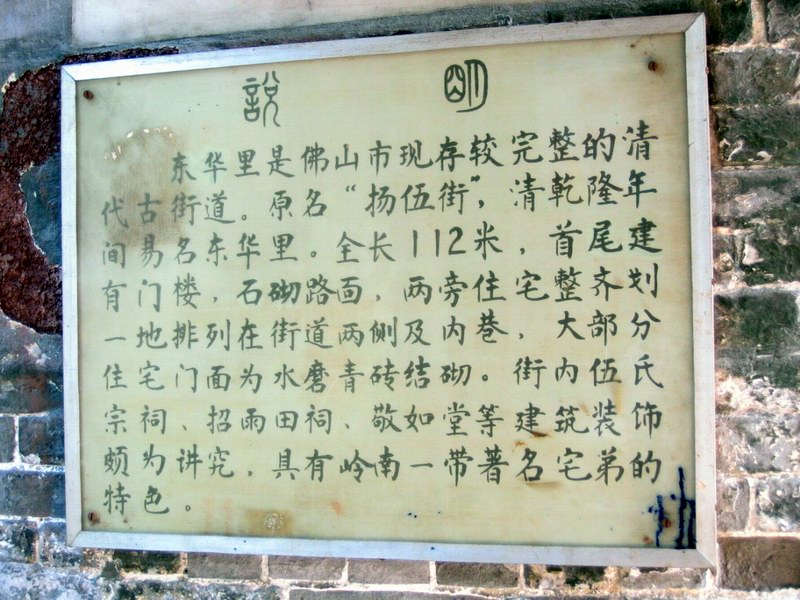 説 明
东华里是佛山市现存较完整的清
代古街道。原名“扬伍街”，清乾隆年
间易名东华里。全长112米，首尾建
有门楼，石砌路面，两旁住宅，整齐划
一地排列在街道两侧及内巷，大部分
住宅门面为水磨青砖结砌。街内伍氏
宗祠、招雨田祠、敬如堂等建筑装饰
颇为讲究，具有岭南一带著名宅弟的
特色。